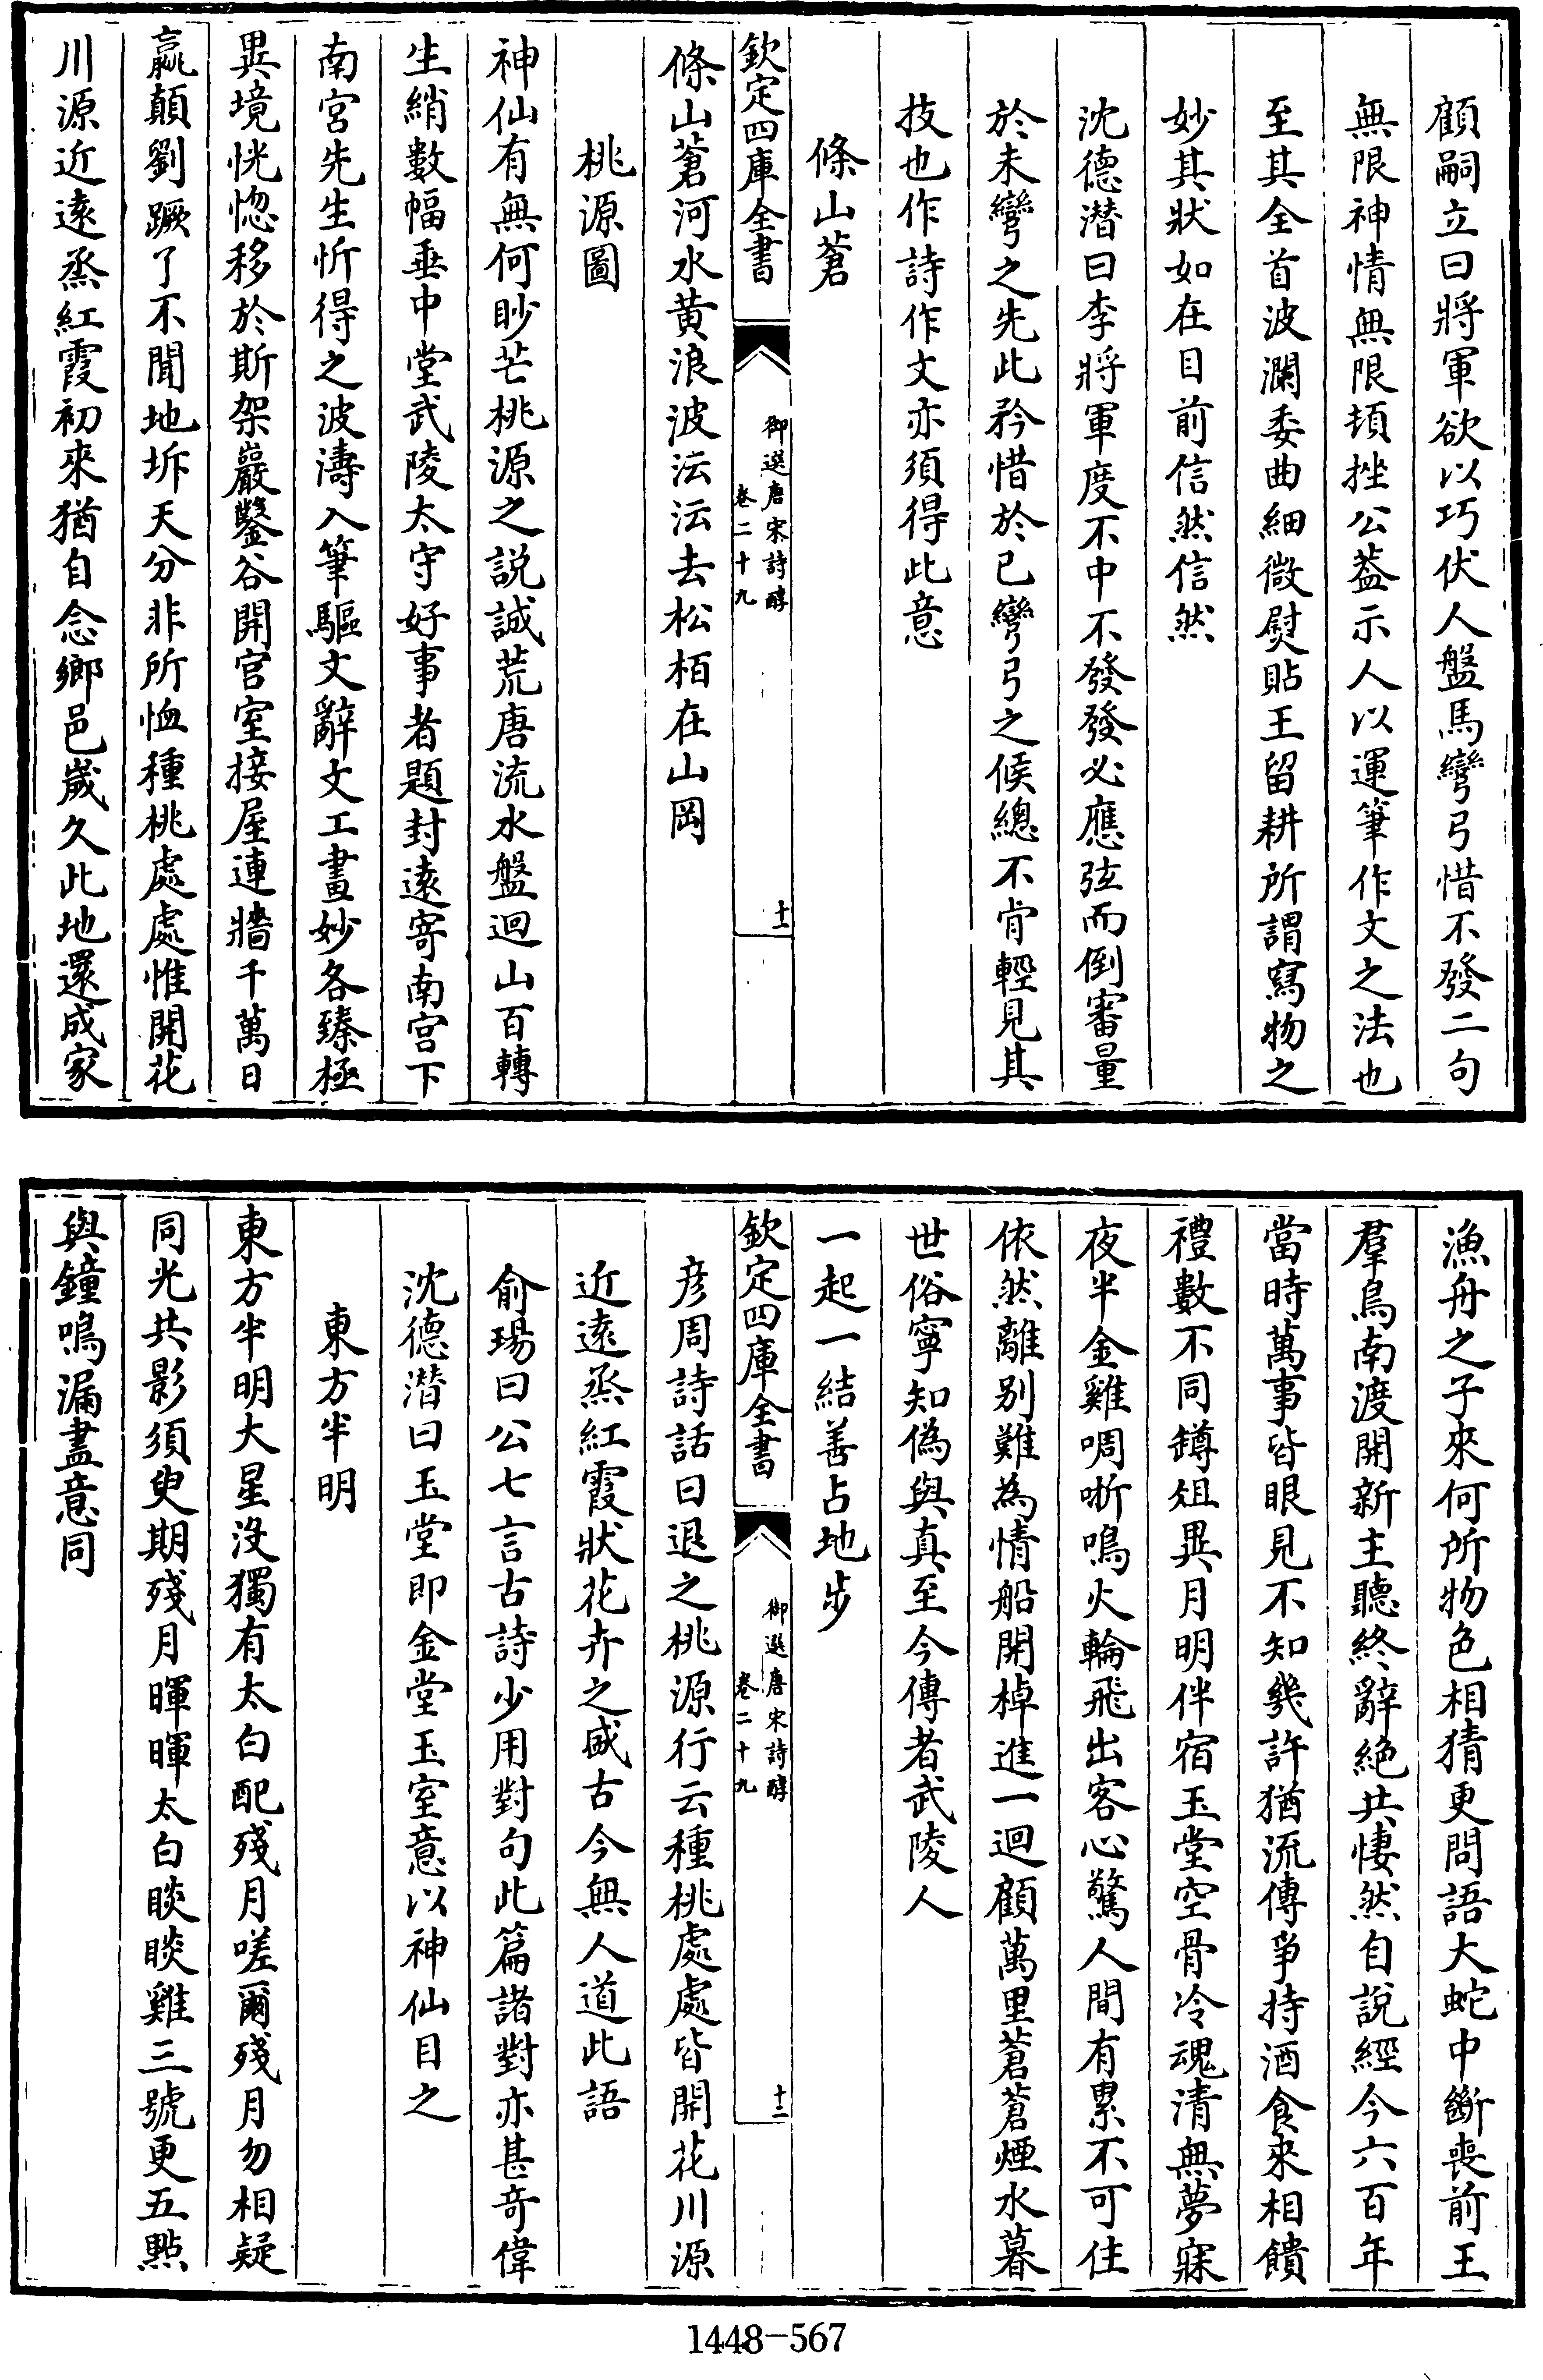 顧嗣立曰將軍欲以巧伏人盤馬彎弓惜不發二句
無限神情無限頓挫公葢示人以運筆作文之法也
至其全首波瀾委曲細微熨貼王留耕所謂寫物之
妙其狀如在目前信然信然
沈德潛曰李將軍度不中不發發必應弦而倒審量
於未彎之先此矜惜於已彎弓之候總不肯輕見其
技也作詩作文亦須得此意
條山蒼
欽定四庫全書
御選唐宋詩醇
卷二十九
十一
條山蒼河水黄浪波沄沄去松栢在山岡
桃源圖
神仙有無何眇芒桃源之説誠荒唐流水盤迴山百轉
生綃數幅垂中堂武陵太守好事者題封遠寄南宫下
南宮先生忻得之波濤入筆驅文辭文工畫妙各臻極
異境恍惚移於斯架巖鑿谷開宫室接屋連牆千萬日
嬴顛劉蹶了不聞地坼天分非所恤種桃處處惟開花
川源近遠烝紅霞初來猶自念鄉邑嵗久此地還成家
漁舟之子來何所物色相猜更問語大蛇中斷喪前王
羣馬南渡開新主聽終辭絶共悽然自説經今六百年
當時萬事皆眼見不知幾許猶流傳爭持酒食來相饋
禮數不同罇俎異月明伴宿玉堂空骨冷魂清無夢寐
夜半金雞啁哳鳴火輪飛出客心驚人間有累不可住
依然離别難為情船開棹進一迴顧萬里蒼蒼煙水暮
世俗寧知偽與真至今傳者武陵人
一起一結善占地歩
欽定四庫全書
御選唐宋詩醇
卷二十九
十二
彦周詩話曰退之桃源行云種桃處處皆開花川源
近遠烝紅霞狀花卉之盛古今無人道此語
俞瑒曰公七言古詩少用對句此篇諸對亦甚竒偉
沈德潛曰玉堂即金堂玉室意以神仙目之
東方半明
東方半明大星没獨有太白配殘月嗟爾殘月勿相疑
同光共影須臾期殘月暉暉太白睒睒雞三號更五點
與鐘鳴漏盡意同
1448-567